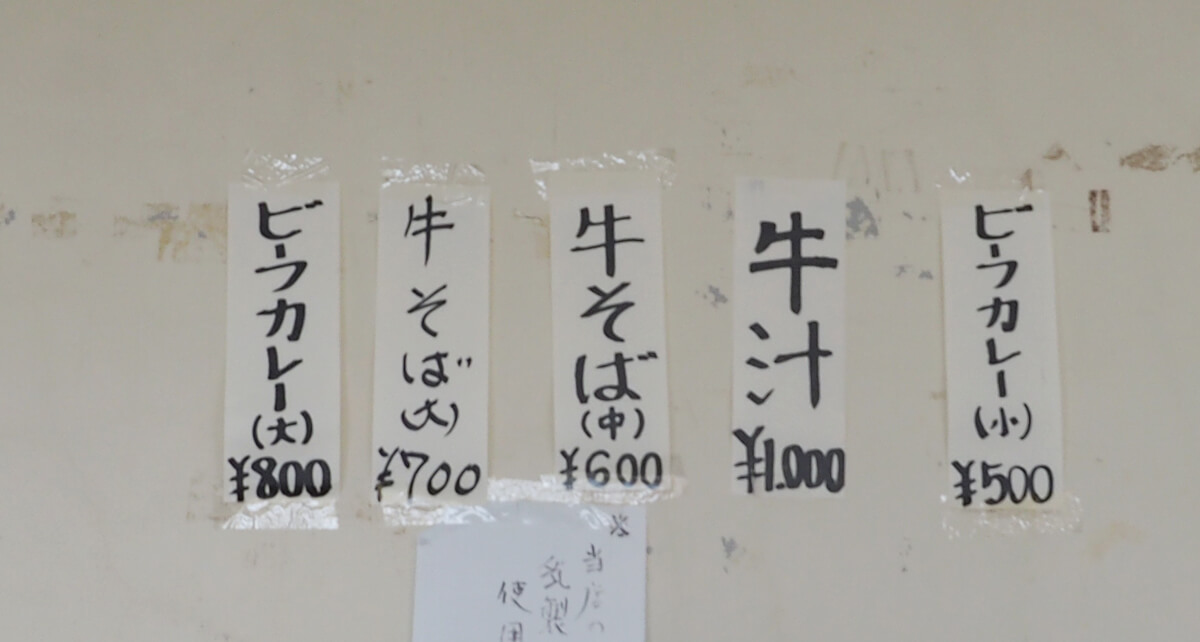 ビーフカレー(大)
¥800
牛そば(大)
¥700
牛そば(中)
¥600
牛汁
¥1.000
ビーフカレー(小)
¥500
※
当店の
使用